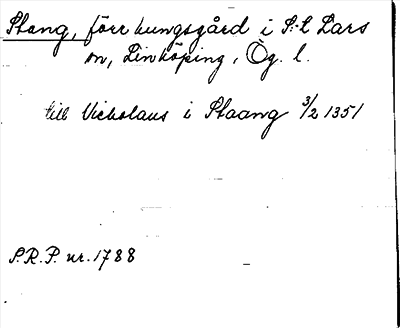 Stang, förr kungsgård i S:t Lars
sn, Linköping, Ög. l.
till Nicholaus i Staang 3/2 1351
S.R.P. nr. 1788